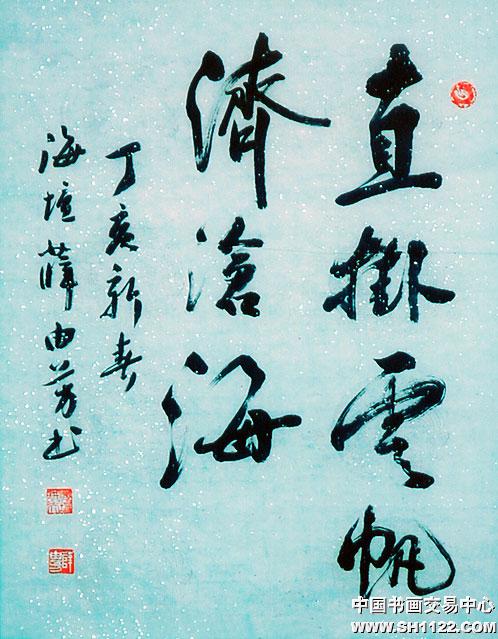 直掛雲帆
濟滄海
丁亥新春
海壇薛由芳书
中国书画交易中心
WWW.SH1122.COM